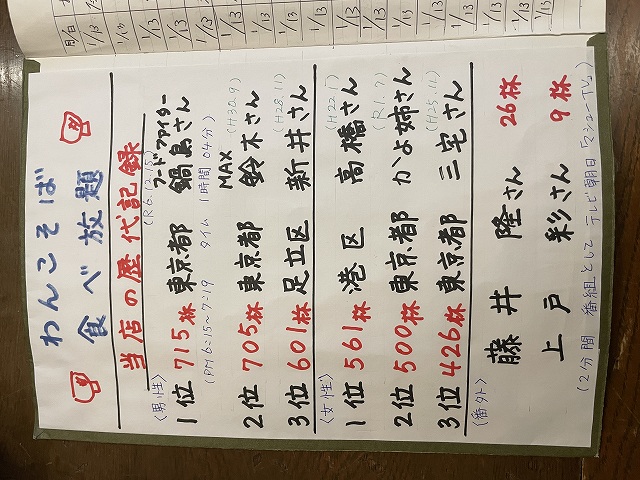 わんこそば
食べ放題
当店の歴代記録
(R6.12.15)
〈男性〉 フードファイター
1位 715杯 東京都 鍋島さん
(PM6:15〜7:19 タイム 1時間04分)
MAX (H30.9)
2位 705杯 東京都 鈴木さん
(H28.11)
3位 601杯 足立区 新井さん
〈女性〉 (H22.1)
1位 561杯 港区 高橋さん
(R1.7)
2位 500杯 東京都 かよ姉さん
(H25.11)
3位 426杯 東京都 三宅さん
〈番外〉
藤井 隆さん 26杯
上戸 彩さん 9杯
(2分間 番組として テレビ朝日「マシューTV」)
月/日
1/13
1/13
1/13
1/13
1/13
1/13
1/13
1/13
1/13
1/13
1/13
1/13
1/13